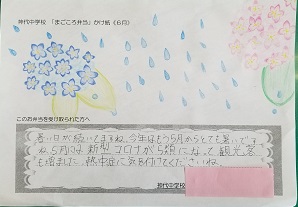 神代中学校 「まごころ弁当」かけ紙《６月》
このお弁当を受け取られた方へ
暑い日が続いてますね。今年はもう5月からとても暑いです
ね。5月は新型コロナが5類になって観光客
も増ました。熱中症に気を付けてくださいね。
神代中学校